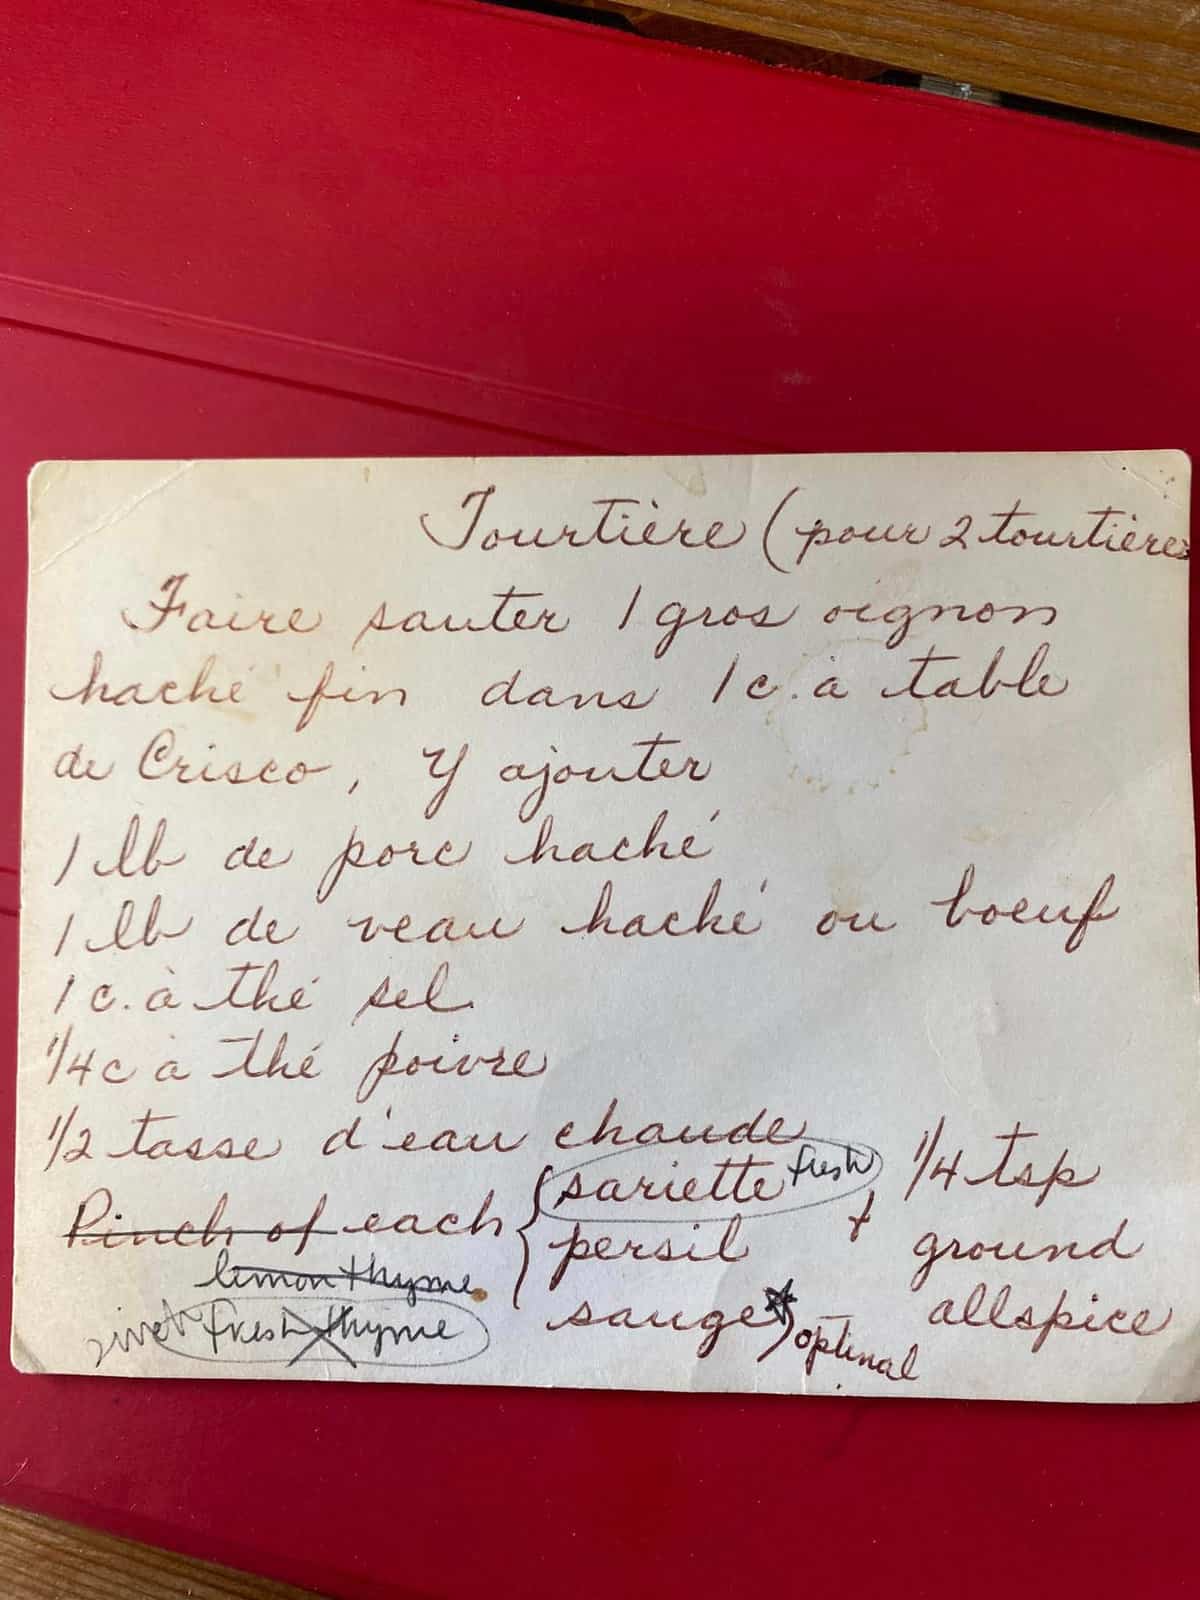 Tourtière (pour 2 tourtières
Faire sauter 1 gros oignon
haché fin dans 1 c. à table
de Crisco, Y ajouter
1 lb de porc haché
1 lb de veau haché ou boeuf
1 c. à thé sel
1/4 c à thé poivre
1/2 tasse d'eau chaude
Pinch of each { sariette fresh
persil
sauge optinal
+ 1/4 tsp
ground
allspice
lemon thyme
fresh thyme